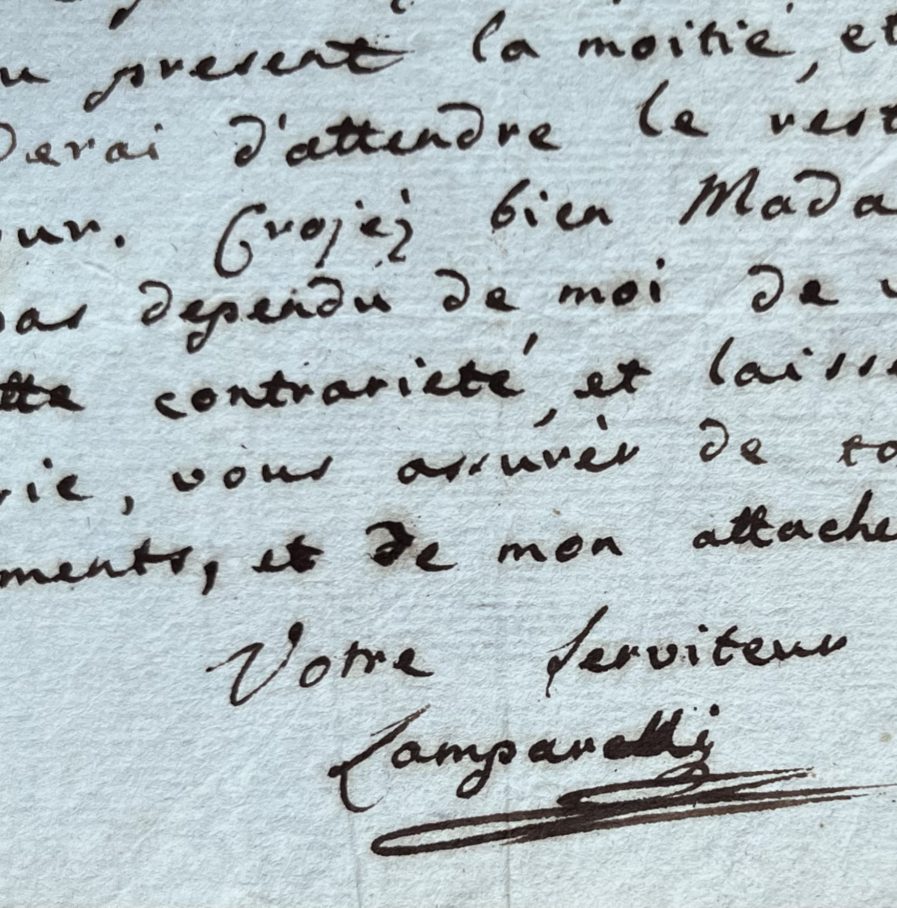 u present la moitié, et
derai d'attendre le rest
our. Crojéz bien Mada
pas dependu de moi de v
tte contrarieté, et laisse
rie, vous assurèr de to
ments, et de mon attache
Votre Serviteur
Lamparelli